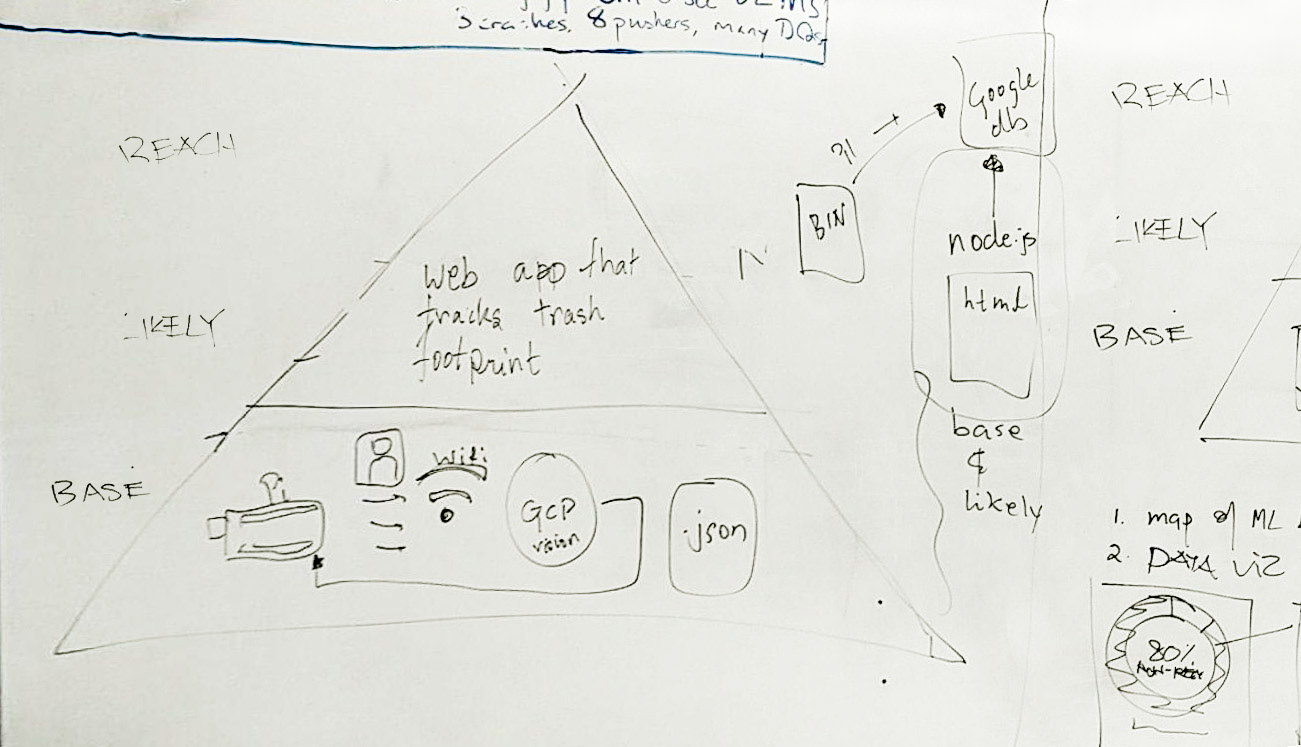 8 pushers, many
REACH
LIKELY
BASE
web app that
tracks trash
footprint
Pi
wifi
GCP
vision
.json
BIN
Google
db
node.js
html
base
&
likely
REACH
LIKELY
BASE
1. map of ML
2. DATA viz
80%